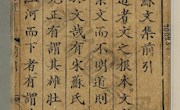 蘇文集前引
道者文之根本文
文而不明道則
文哉有宋蘇氏
有謂其雄壯
江河而下者有謂